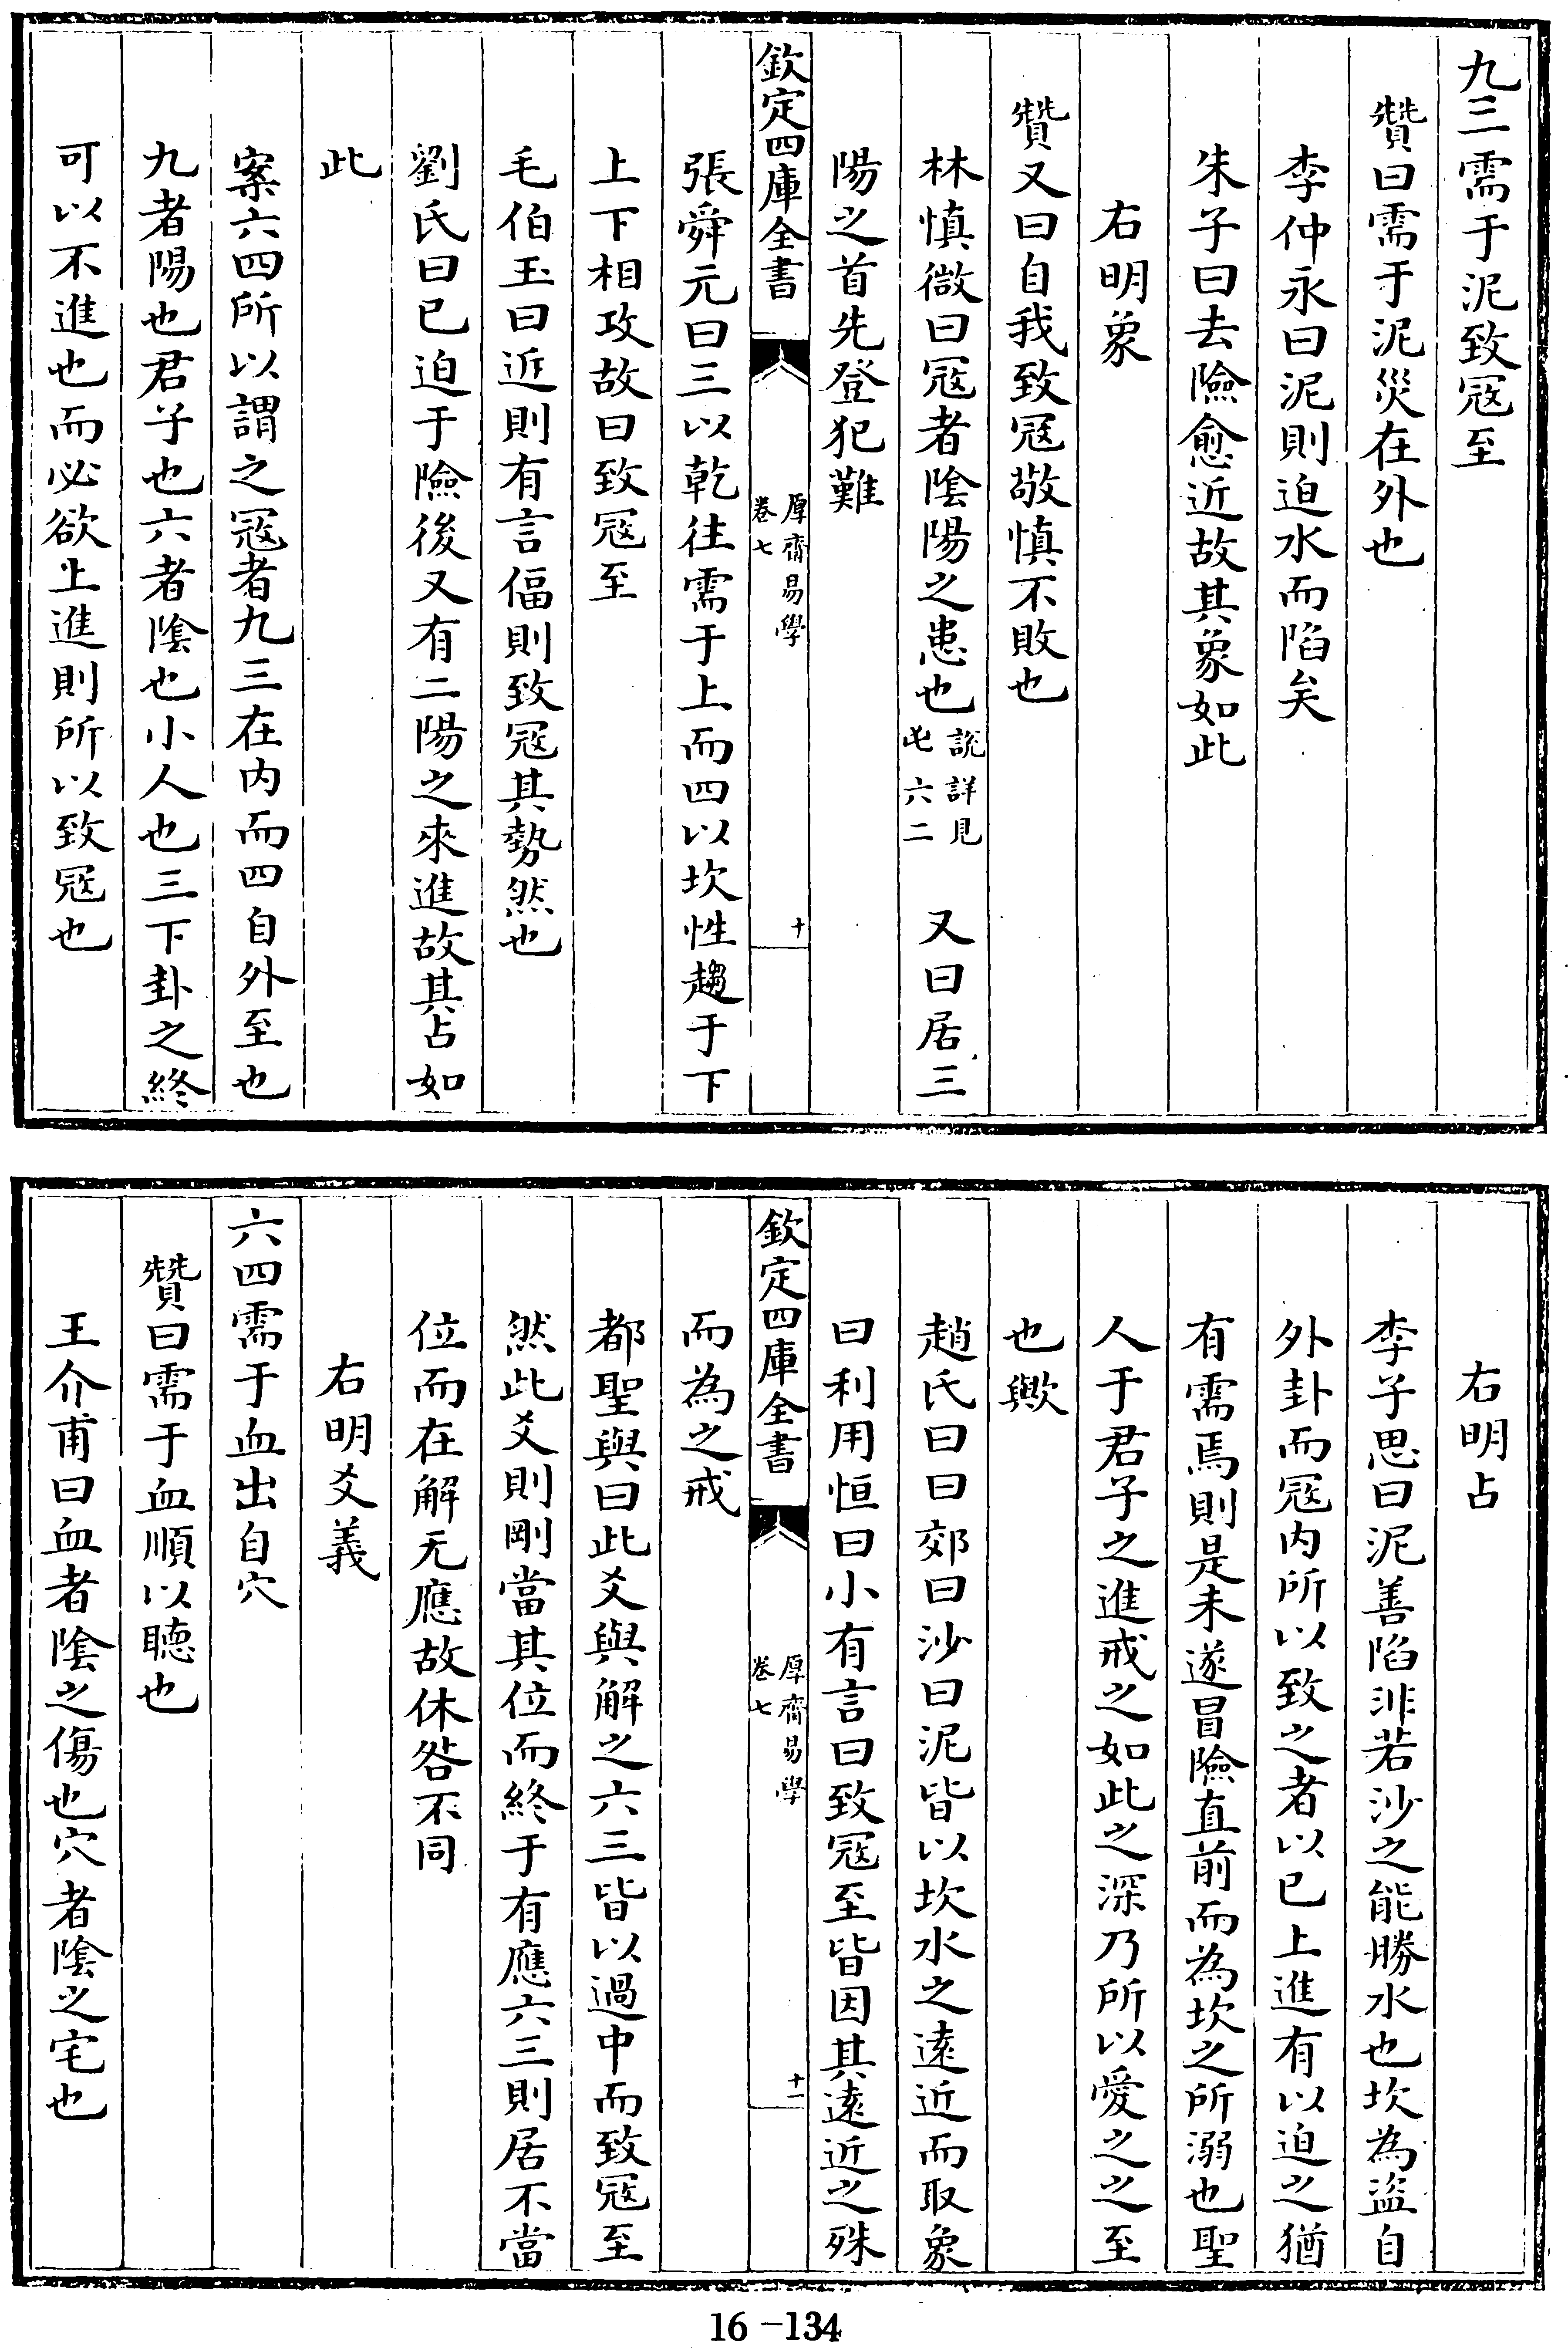 九三需于泥致冦至
贊曰需于泥災在外也
李仲永曰泥則迫水而陷矣
朱子曰去險愈近故其象如此
右明象
贊又曰自我致冦敬慎不敗也
林慎微曰冦者陰陽之患也說詳見屯六二 又曰居三
陽之首先登犯難
欽定四庫全書 厚齋易學 卷七 十
張舜元曰三以乾往需于上而四以坎性趨于下
上下相攻故曰致冦至
毛伯玉曰近則有言偪則致冦其勢然也
劉氏曰已迫于險後又有二陽之來進故其占如
此
案六四所以謂之冦者九三在内而四自外至也
九者陽也君子也六者陰也小人也三下卦之終
可以不進也而必欲上進則所以致冦也
右明占
李子思曰泥善陷非若沙之能勝水也坎為盜自
外卦而冦内所以致之者以已上進有以迫之猶
有需焉則是未遂冒險直前而為坎之所溺也聖
人于君子之進戒之如此之深乃所以愛之之至
也歟
趙氏曰曰郊曰沙曰泥皆以坎水之遠近而取象
曰利用恒曰小有言曰致冦至皆因其遠近之殊
欽定四庫全書 厚齋易學 卷七 十一
而為之戒
都聖與曰此爻與解之六三皆以過中而致冦至
然此爻則剛當其位而終于有應六三則居不當
位而在解无應故休咎不同
右明爻義
六四需于血出自穴
贊曰需于血順以聽也
王介甫曰血者陰之傷也穴者陰之宅也
16-134